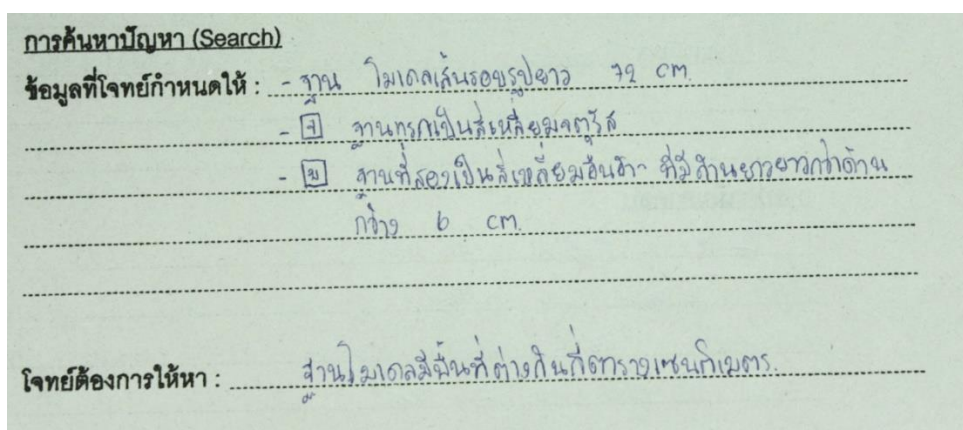 การค้นหาปัญหา (Search)
ข้อมูลที่โจทย์กำหนดให้ : - ฐาน โมเดลเส้นรอบรูปยาว 72 cm.
- 1 ฐานแรกเป็นสี่เหลี่ยมจตุรัส
- 2 ฐานที่สองเป็นสี่เหลี่ยมผืนผ้า ที่มีด้านยาวยาวกว่าด้าน
กว้าง 6 cm.
โจทย์ต้องการให้หา : ฐานโมเดลมีพื้นที่ต่างกันกี่ตารางเซนติเมตร.